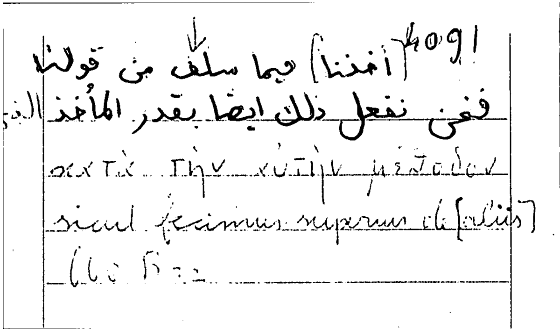 4091
(أخذنا) فيما سلف من قولنا
فنحن نفعل ذلك ايضا بقدر المأخذ
κατὰ τὴν αὐτὴν μέθοδον
sicut fecimus superius de [aliis]